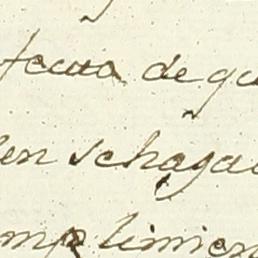 fecua de qu
en schaga
mplimien